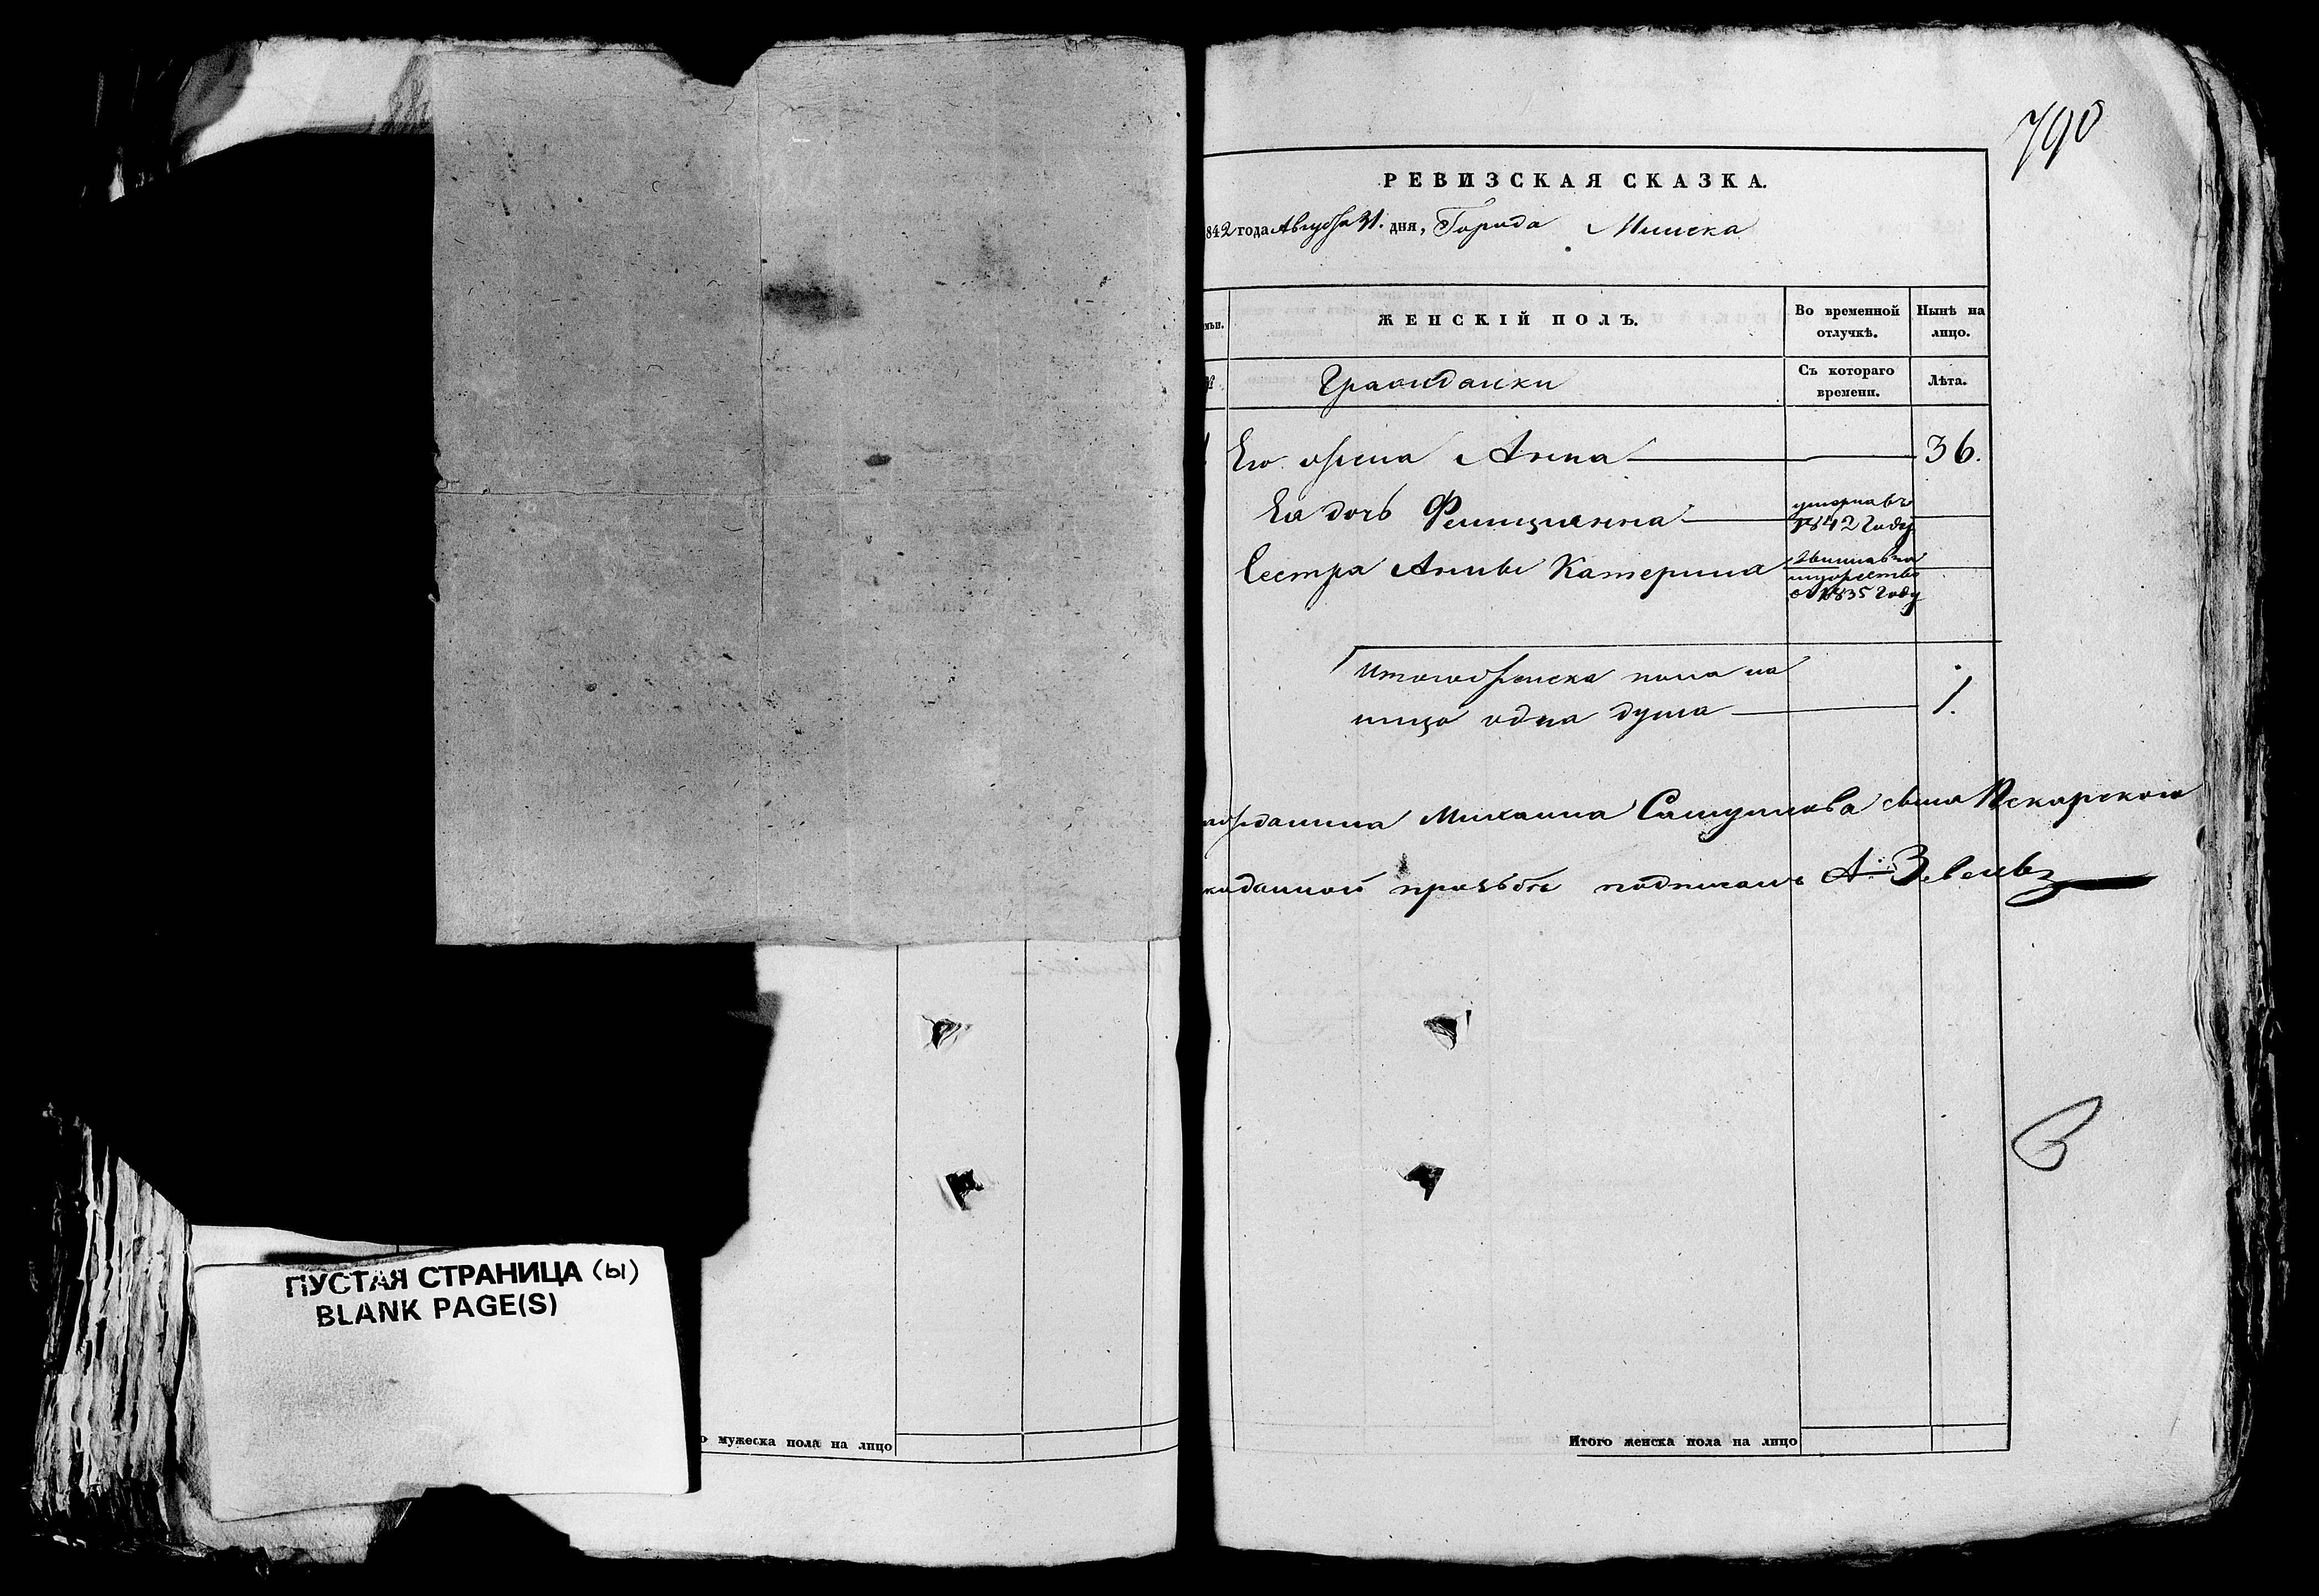 790
РЕВИЗСКАЯ СКАЗКА.
842 года Августа 31. дня, Города Минска
ЖЕНСКІЙ ПОЛЪ.
Во временной отлучкѣ.
Нынѣ на лицо.
Гражданки
Съ котораго времени.
Лѣта.
Его жена Анна 36.
Ея дочь Фелициянна умерла въ 1842 Году
Сестра Анны Катерина
замужество
1835 Году
Итого женска пола на
лицо одна душа 1.
жданина Михаила Самуилова сына Пекарского
данной прозьбе подписалъ А.
ПУСТАЯ СТРАНИЦА (ы)
BLANK PAGE(S)
о мужеска пола на лицо
Итого женска пола на лицо